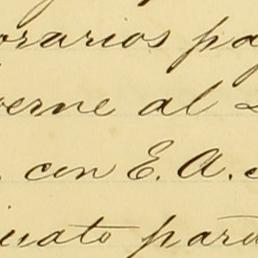 orarios pa
erne al
con E. A.
para